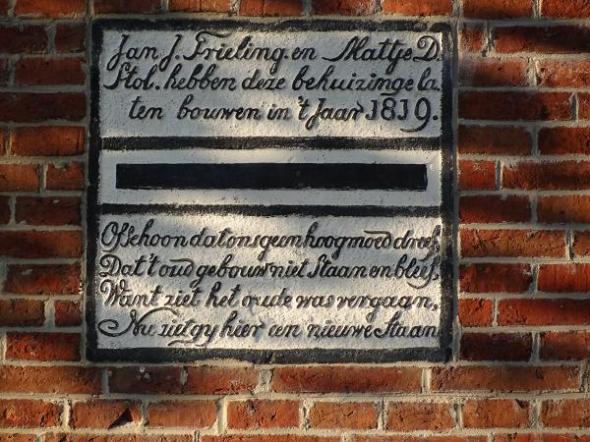 Jan J. Frieling. en Mattje D.
Stol. hebben deze behuizinge la.
ten bouwen in 't Jaar 1819.
Ofschoon dat ons geen hoogmoed dreef,
Dat 't oud gebouw niet Staan en bleef,
Want ziet het oude was vergaan,
Nu ziet gy hier een nieuwe Staan